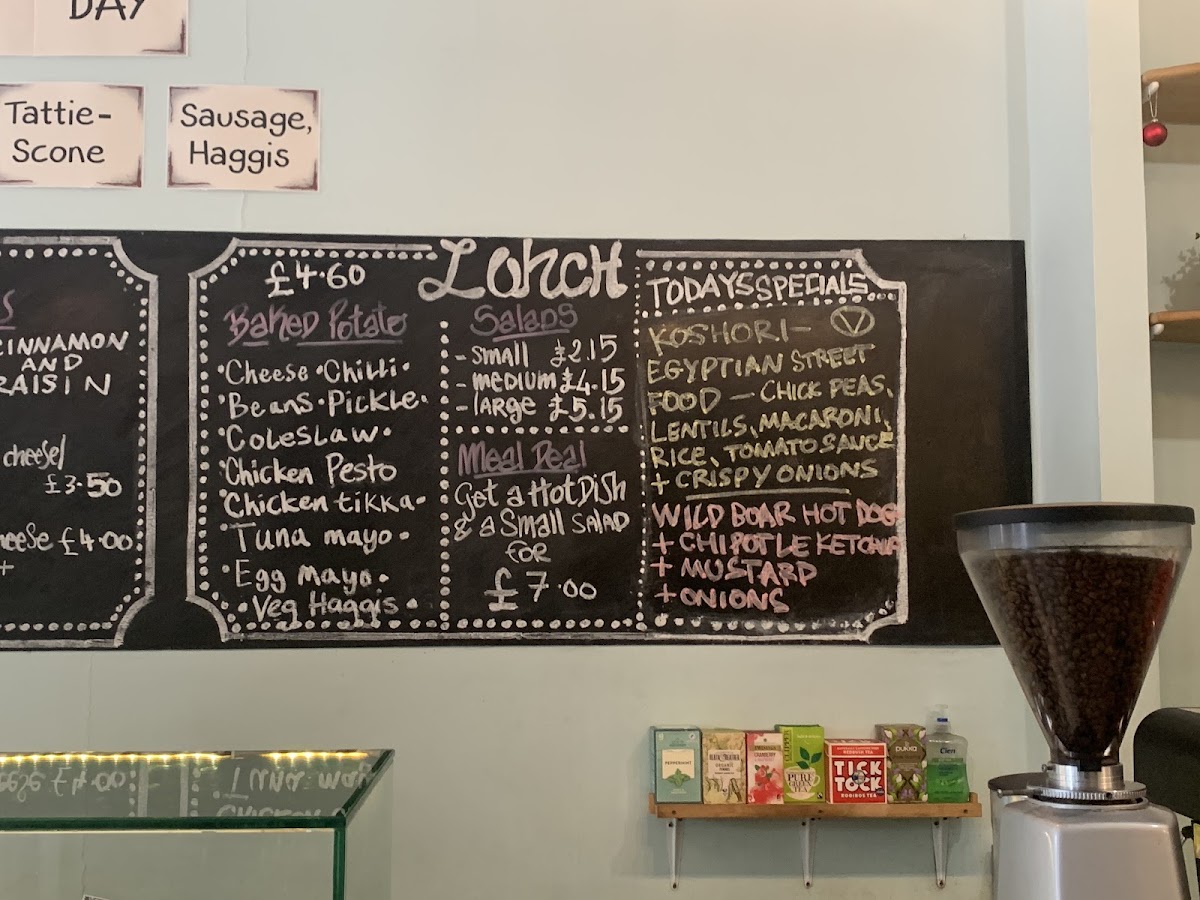 DAY
Tattie-
Scone
Sausage,
Haggis
S
CINNAMON
AND
RAISIN
cheese/
£3.50
heese £4.00
+
Lunch
£4.60
Baked Potato
• Cheese • Chilli •
• Beans • Pickle •
• Coleslaw •
• Chicken Pesto
• Chicken tikka •
• Tuna mayo •
• Egg mayo •
• Veg Haggis •
Salads
- Small £2.15
- medium £4.15
- large £5.15
Meal Deal
Get a Hot Dish
& a Small Salad
for
£7.00
TODAYS SPECIALS
KOSHORI - V
EGYPTIAN STREET
FOOD - CHICK PEAS,
LENTILS, MACARONI,
RICE, TOMATO SAUCE
+ CRISPY ONIONS
WILD BOAR HOT DOG
+ CHIPOTLE KETCHUP
+ MUSTARD
+ ONIONS
PEPPERMINT
PURE
GREEN
TEA
TICK
TOCK
ROOIBOS TEA
PUKKA
Cien